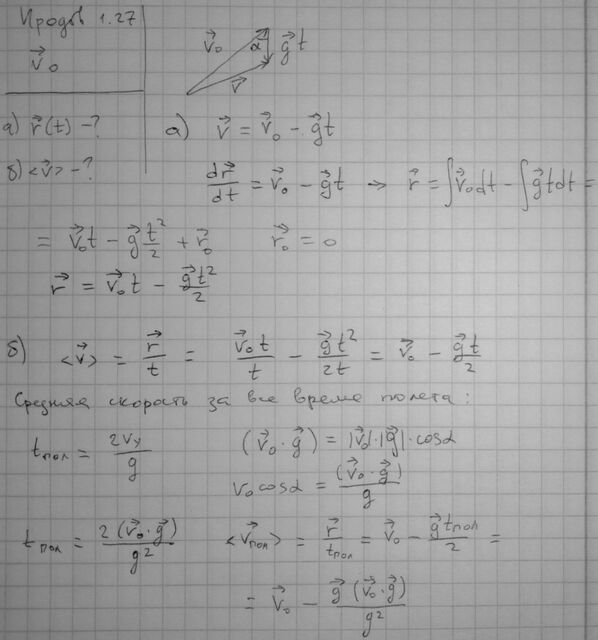 Иродов 1.27
v⃗₀
v⃗₀ α g⃗t v⃗
а) r⃗(t) - ?
б) <v⃗> - ?
а) v⃗ = v⃗₀ − g⃗t
dr⃗/dt = v⃗₀ − g⃗t → r⃗ = ∫v⃗₀dt − ∫g⃗tdt =
= v⃗₀t − g⃗ t²/2 + r⃗₀ r⃗₀ = 0
r⃗ = v⃗₀t − g⃗t²/2
б) <v⃗> = r⃗/t = v⃗₀t/t − g⃗t²/2t = v⃗₀ − g⃗t/2
Средняя скорость за все время полета:
tпол = 2vy/g (v⃗₀·g⃗) = |v⃗₀|·|g⃗|·cosα
v₀cosα = (v⃗₀·g⃗)/g
tпол = 2(v⃗₀·g⃗)/g² <v⃗пол> = r⃗/tпол = v⃗₀ − g⃗tпол/2 =
= v⃗₀ − g⃗(v⃗₀·g⃗)/g²